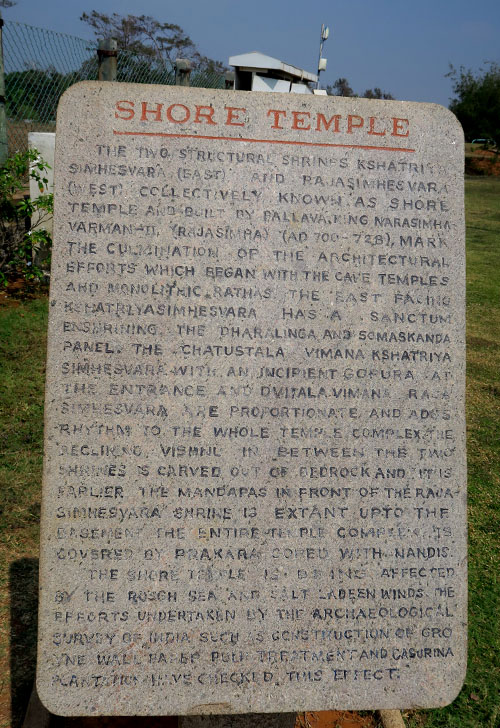 SHORE TEMPLE
THE TWO STRUCTURAL SHRINES KSHATRIYA
SIMHESVARA (EAST) AND RAJASIMHESVARA
(WEST) COLLECTIVELY KNOWN AS SHORE
TEMPLE AND BUILT BY PALLAVA KING NARASIMHA
VARMAN-II, (RAJASIMHA) (AD 700-728), MARK
THE CULMINATION OF THE ARCHITECTURAL
EFFORTS WHICH BEGAN WITH THE CAVE TEMPLES
AND MONOLITHIC RATHAS. THE EAST FACING
KSHATRIYASIMHESVARA HAS A SANCTUM
ENSHRINING THE DHARALINGA AND SOMASKANDA
PANEL. THE CHATUSTALA VIMANA KSHATRIYA
SIMHESVARA WITH AN INCIPIENT GOPURA AT
THE ENTRANCE AND DVITALA VIMANA RAJA
SIMHESVARA ARE PROPORTIONATE AND ADDS
RHYTHM TO THE WHOLE TEMPLE COMPLEX. THE
RECLINING VISHNU IN BETWEEN THE TWO
SHRINES IS CARVED OUT OF BEDROCK AND IT IS
EARLIER. THE MANDAPAS IN FRONT OF THE RAJA-
SIMHESVARA SHRINE IS EXTANT UPTO THE
BASEMENT. THE ENTIRE TEMPLE COMPLEX IS
COVERED BY PRAKARA WITH NANDIS.
THE SHORE TEMPLE IS BEING AFFECTED
BY THE ROUGH SEA AND SALT LADEEN WINDS. THE
EFFORTS UNDERTAKEN BY THE ARCHAEOLOGICAL
SURVEY OF INDIA SUCH AS CONSTRUCTION OF GRO
YNE WALL PAPER PULP TREATMENT AND CASURINA
PLANTATION HAVE CHECKED THIS EFFECT.